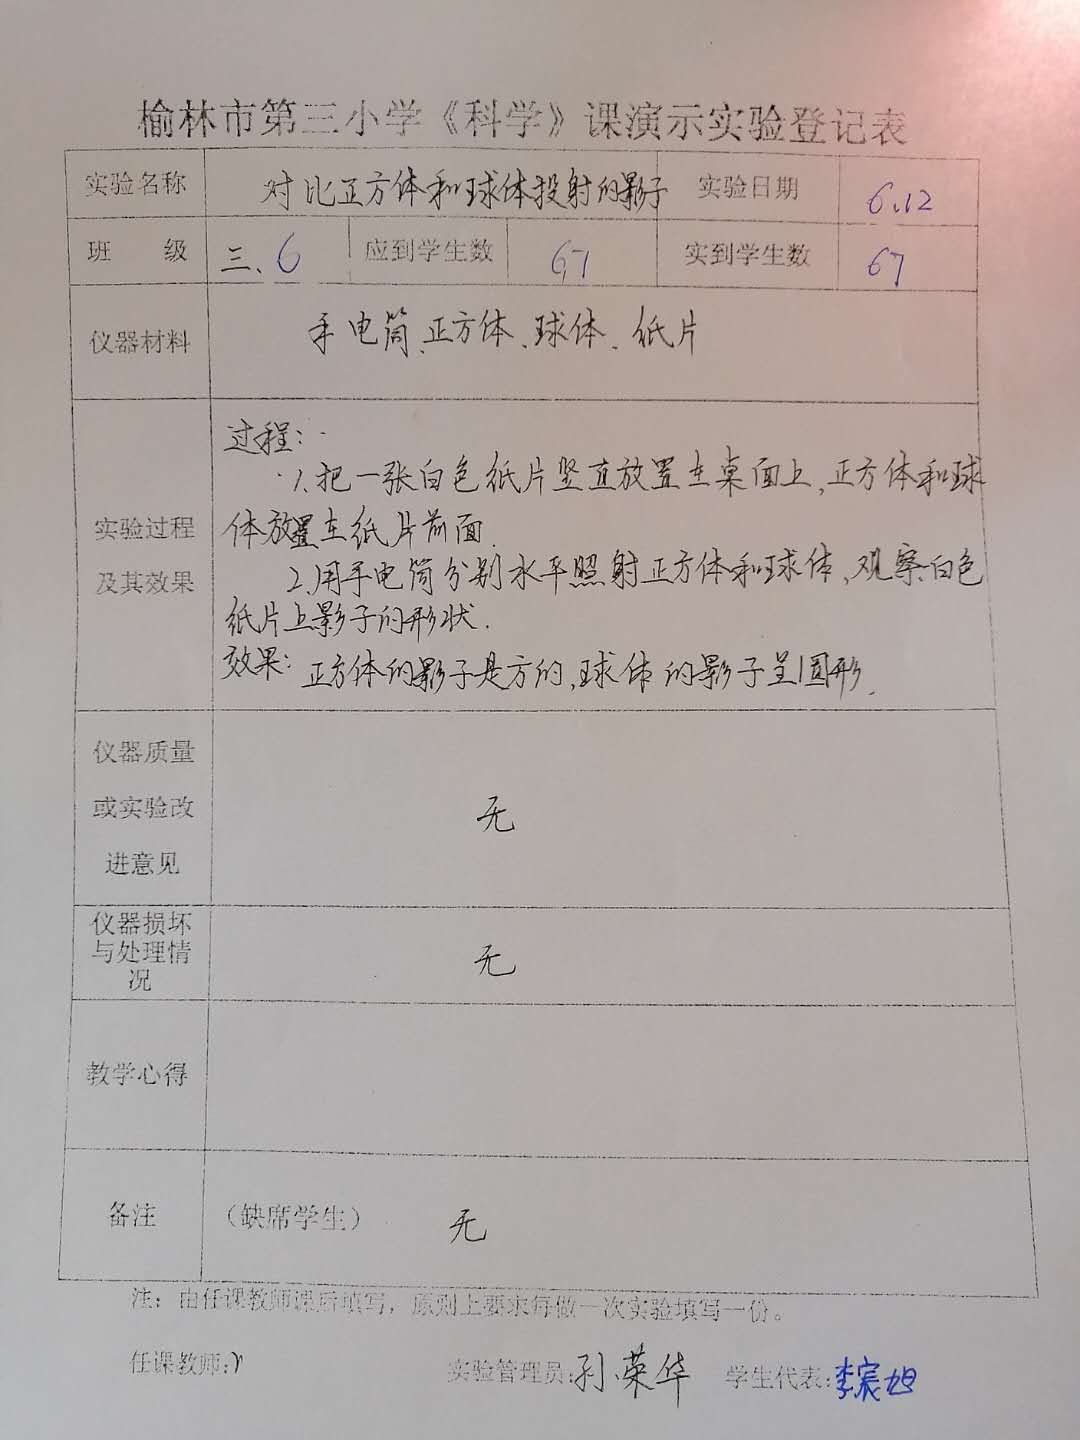 榆林市第三小学《科学》课演示实验登记表
实验名称 对比正方体和球体投射的影子 实验日期 6.12
班 级 三、6 应到学生数 67 实到学生数 67
仪器材料 手电筒、正方体、球体、纸片
过程:
1.把一张白色纸片竖直放置在桌面上,正方体和球
体放置在纸片前面.
2.用手电筒分别水平照射正方体和球体,观察白色
纸片上影子的形状.
效果:正方体的影子是方的,球体的影子呈圆形.
实验过程
及其效果
仪器质量
或实验改
进意见
无
仪器损坏
与处理情
况
无
教学心得
备注 (缺席学生) 无
注:由任课教师课后填写,原则上要求每做一次实验填写一份。
任课教师: 实验管理员:孙荣华 学生代表:李宸旭